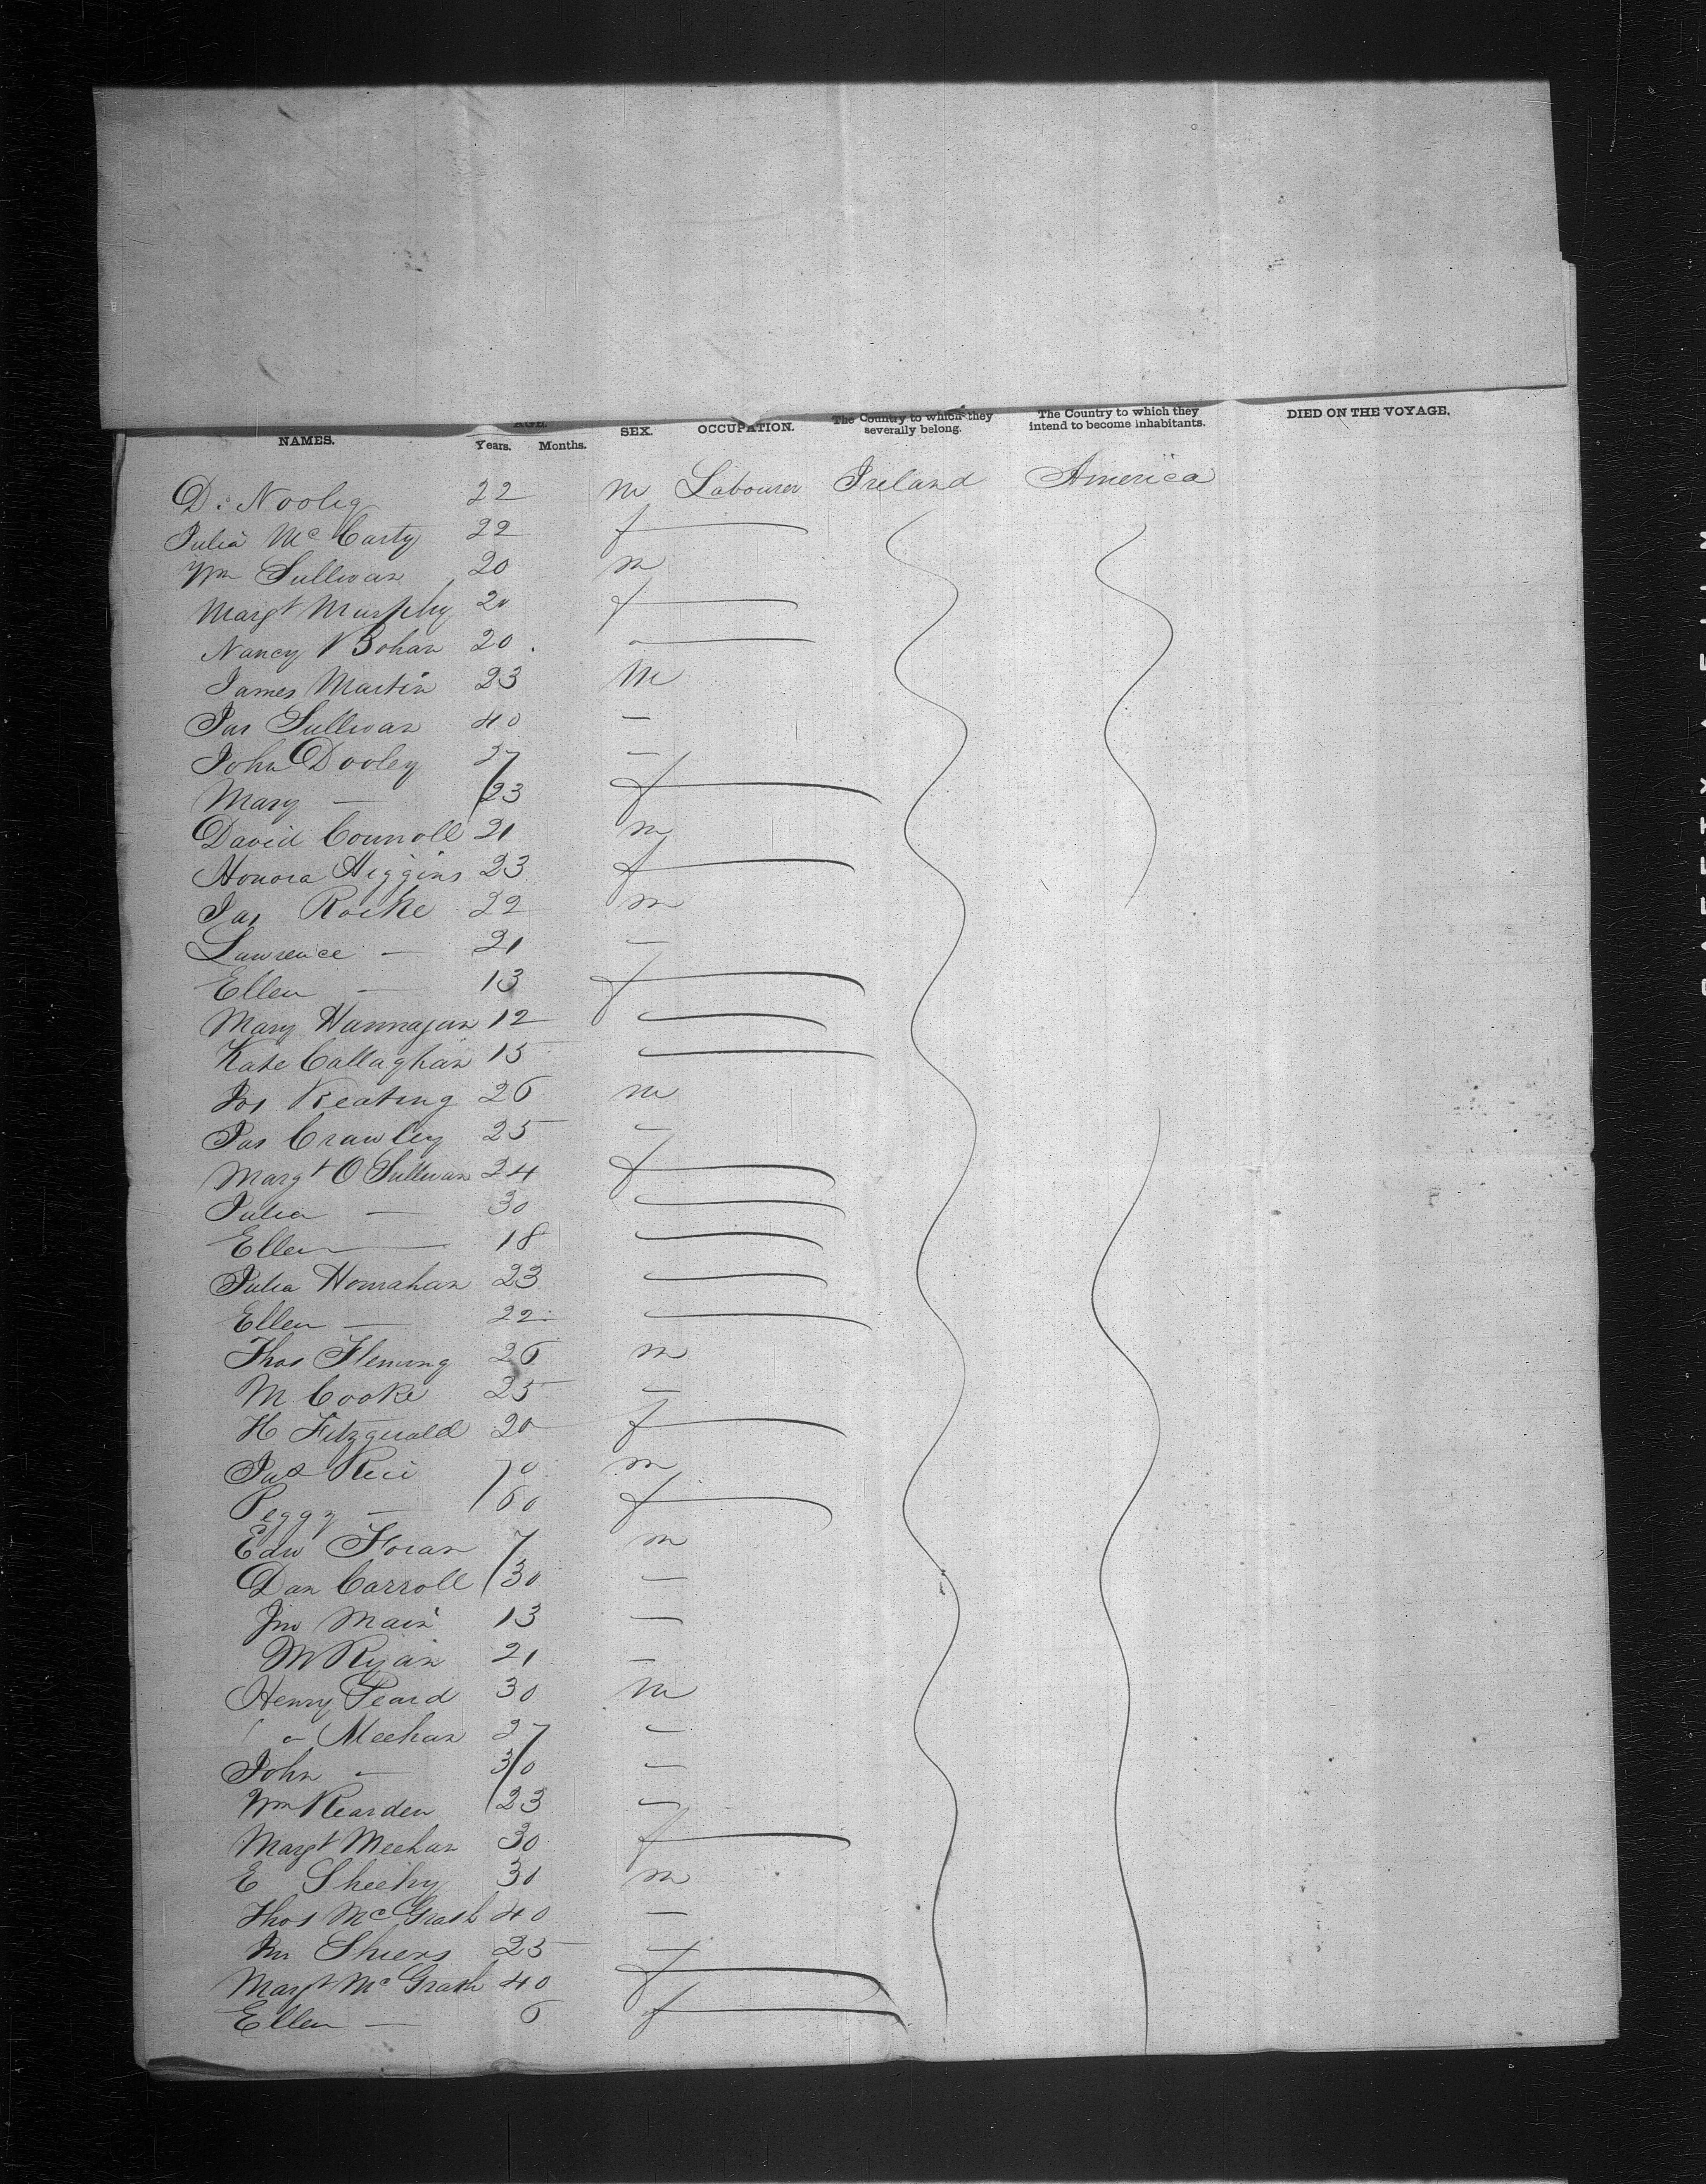 NAMES. AGE. Years. Months. SEX. OCCUPATION. The Country to which they severally belong. The Country to which they intend to become inhabitants. DIED ON THE VOYAGE.
D. 22 m Labourer Ireland America
Julia McCarty 22 f —
Wm Sullivan 20 m
Margt Murphy 20 f —
Nancy Bohan 20 — —
James Martin 23 m
Jas Sullivan 40 —
John Dooley 37 —
Mary — 23 f —
David Connoll 21 m
Honora Higgins 23 f —
Jas Rocke 22 m
Lawrence — 21 —
Ellen — 13 f —
Mary Hannagan 12 —
Kate Callaghan 15 —
Jos Keating 26 m
Jas Crawley 25 —
Margt O Sullivan 24 f —
Julia — 30 —
Ellen — 18 —
Julia Hourahan 23 —
Ellen — 22 —
Thos Fleming 26 m
M Cooke 25 —
H Fitzguald 20 f —
Jas 70 m
Peggy — 60 f —
Edw Foran 7 m
Dan Carroll 30 —
Jno Main 13 —
M Ryan 21 —
Henry Peard 30 m
Meehan 27 —
John — 30 —
Wm Rearden 23 —
Margt Meehan 30 f —
E Sheehy 30 m
Thos McGrath 40 —
Jno Shiers 25 —
Margt McGrath 40 f —
Ellen — 6 f —